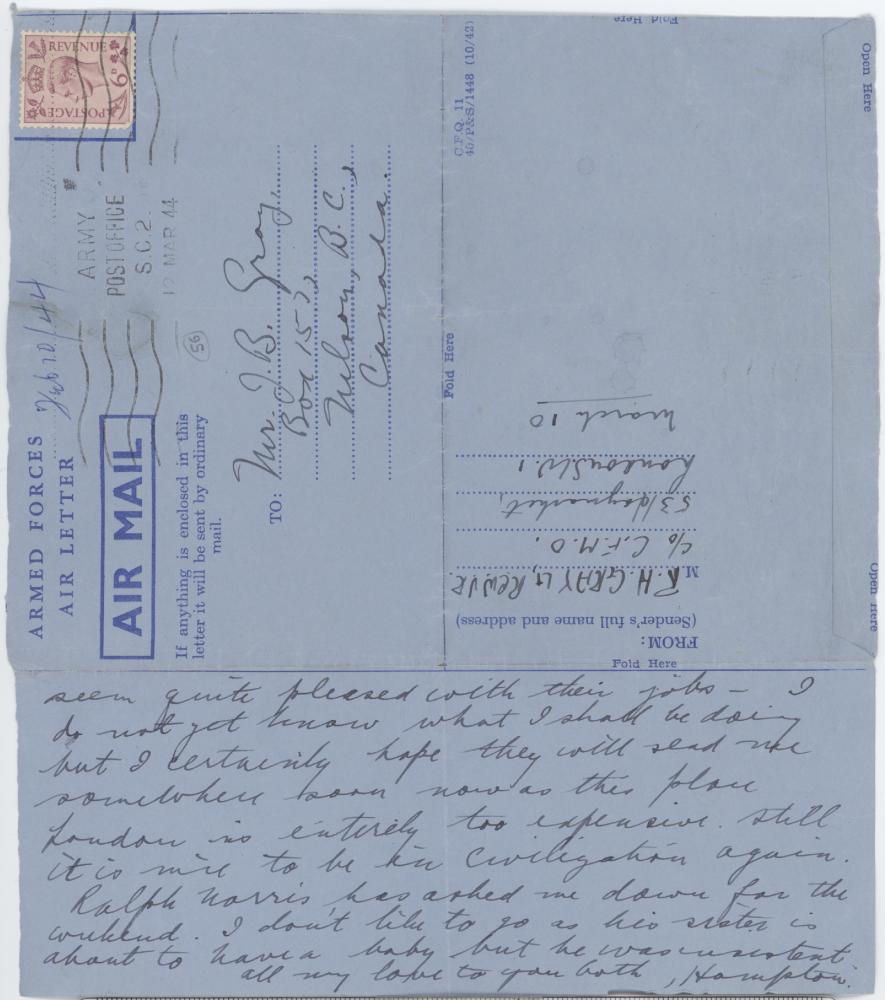 REVENUE
6D
POSTAGE
ARMED FORCES
AIR LETTER
AIR MAIL
ARMY
POST OFFICE
S.C.2.
12 MAR 44
56
If anything is enclosed in this
letter it will be sent by ordinary
mail.
TO:
Mr. J. B. Gray,
Box 157,
Nelson, B.C.,
Canada.
C.F.Q. 11
40/P&S/1448 (10/42)
Fold Here
Fold Here
Open Here
Open Here
Fold Here
FROM:
(Sender's full name and address)
M R.H. GRAY Lt, RCNVR.
c/o C.F.M.O.
53 Haymarket,
London SW1
March 10
seem quite pleased with their jobs - I
do not yet know what I shall be doing
but I certainly hope they will send me
somewhere soon now as this place
London is entirely too expensive. Still
it is nice to be in civilization again.
Ralph Norris has asked me down for the
weekend. I don't like to go as his sister is
about to have a baby but he was insistent
all my love to you both, Hampton.